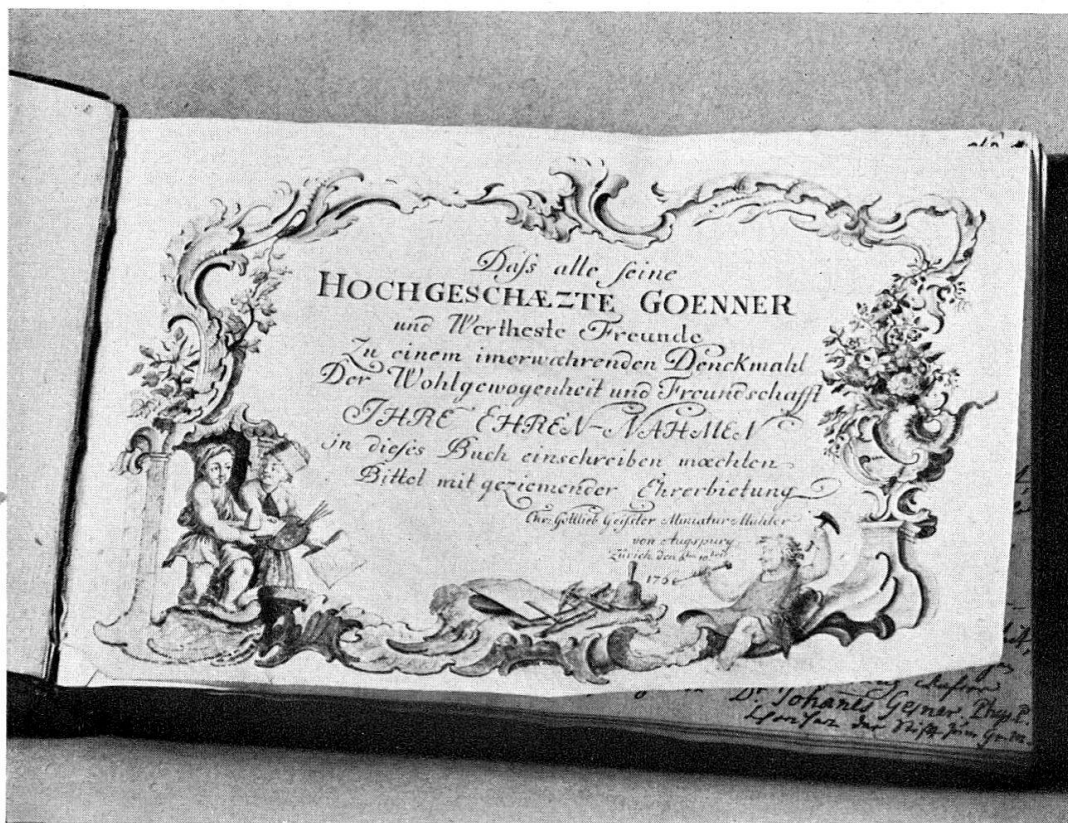 Daſs alle ſeine
HOCHGESCHÆZTE GOENNER
und Wertheste Freunde
Zu einem imerwæhrenden Denckmahl
Der Wohlgewogenheit und Freundschafft
IHRE EHREN-NAHMEN
in dieſes Buch einschreiben mœchten
Bittet mit geziemender Ehrerbietung
Chr: Gottlieb Geiſsler Miniatur-Mahler
von Augspurg
Zürich den
176
Dr. Johanes Gesner, Phys. P.
der Stifft zum